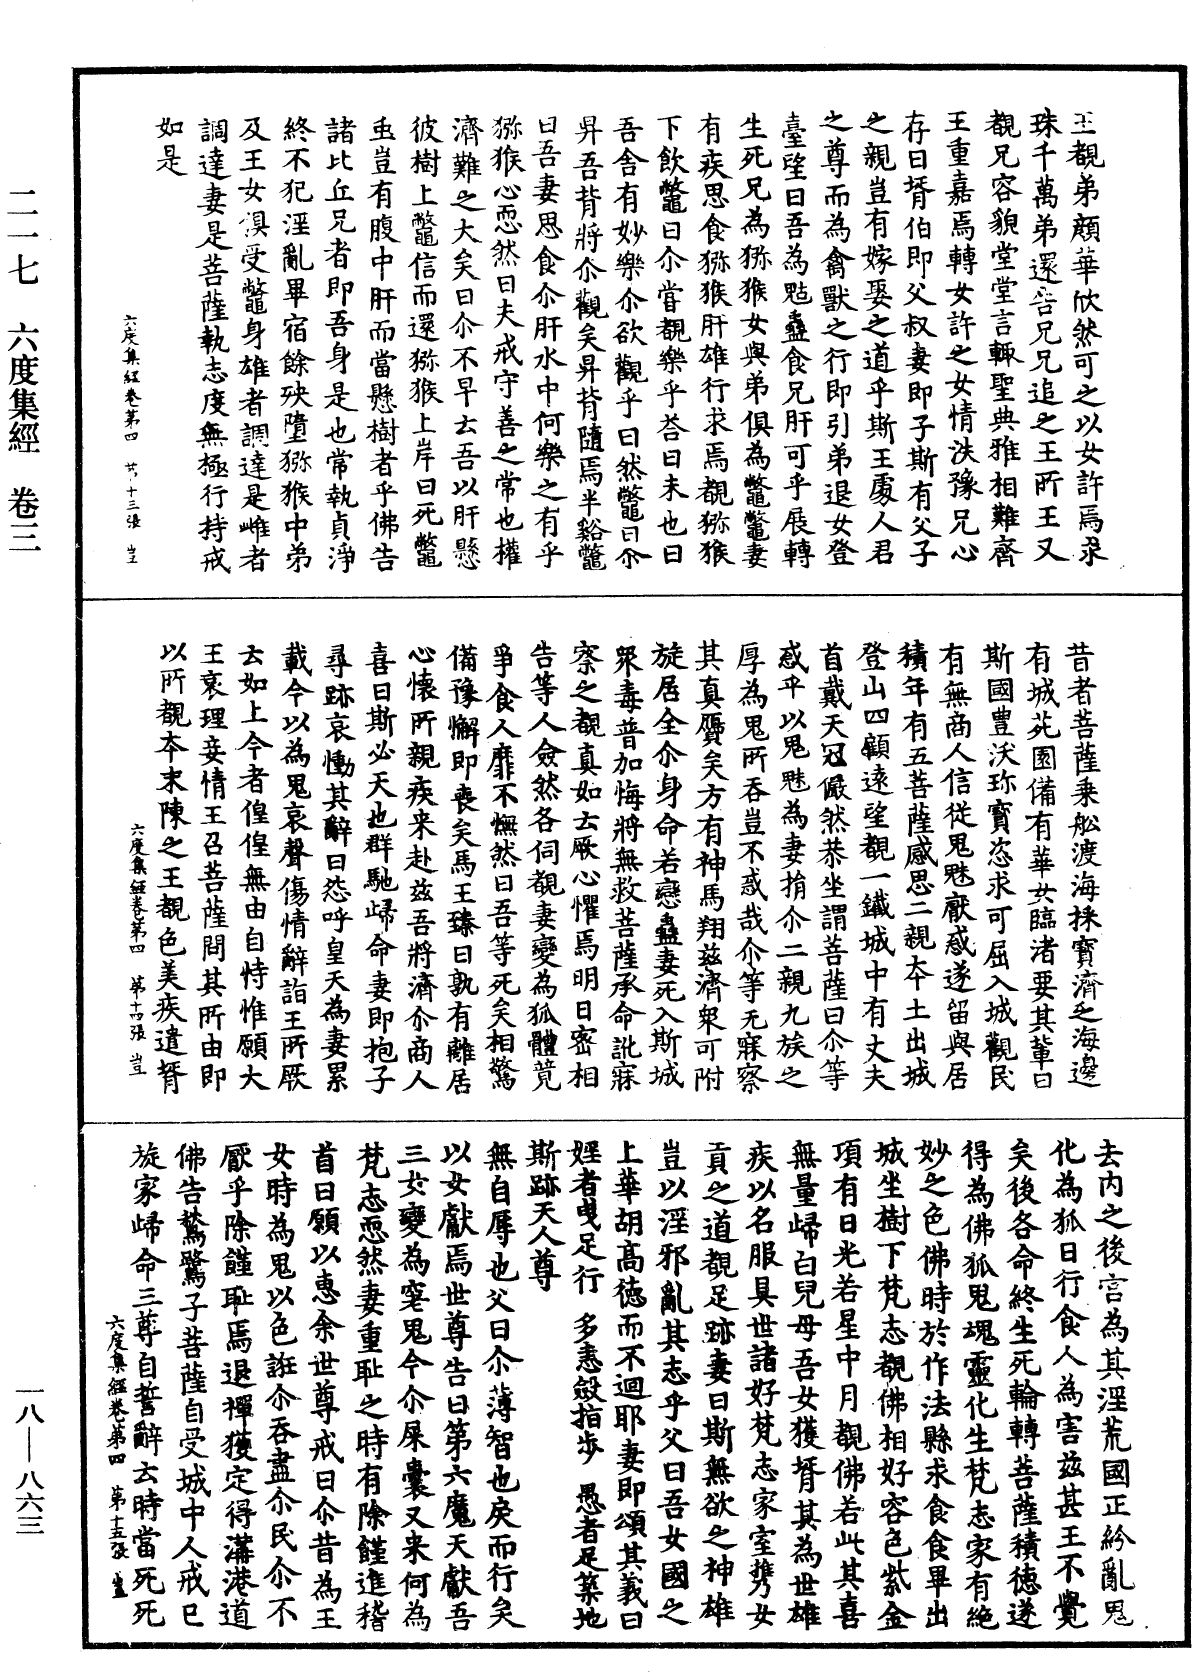 王覩弟顏華欣然可之以女許焉求
珠千萬弟還告兄兄追之王所王又
覩兄容貌堂堂言輒聖典雅相難齊
王重嘉焉轉女許之女情泆豫兄心
存曰壻伯即父叔妻即子斯有父子
之親豈有嫁娶之道乎斯王處人君
之尊而為禽獸之行即引弟退女登
臺望曰吾為魅蠱食兄肝可乎展轉
生死兄為獼猴女與弟俱為鼈鼈妻
有疾思食獼猴肝雄行求焉覩獼猴
下飲鼈曰尒嘗覩樂乎荅曰未也曰
吾舍有妙樂尒欲觀乎曰然鼈曰尒
昇吾背將尒觀矣昇背隨焉半谿鼈
曰吾妻思食尒肝水中何樂之有乎
獼猴心恧然曰夫戒守善之常也權
濟難之大矣曰尒不早云吾以肝懸
彼樹上鼈信而還獼猴上岸曰死鼈
䖝豈有腹中肝而當懸樹者乎佛告
諸比丘兄者即吾身是也常執貞淨
終不犯淫亂畢宿餘殃墮獼猴中弟
及王女俱受鼈身雄者調達是雌者
調達妻是菩薩執志度無極行持戒
如是
六度集經卷第四 第十三張 豈
昔者菩薩乗舩渡海採寶濟乏海邊
有城苑園備有華女臨渚要其輩曰
斯國豊沃珎寶恣求可屈入城觀民
有無商人信從鬼魅厭惑遂留與居
積年有五菩薩感思二親夲土出城
登山四顧遠望覩一鐵城中有丈夫
首戴天冠儼然恭坐謂菩薩曰尒等
惑乎以鬼魅為妻捐尒二親九族之
厚為鬼所吞豈不惑哉尒等无寐察
其真贋矣方有神馬翔兹濟衆可附
旋居全尒身命若戀蠱妻死入斯城
衆毒普加悔將無救菩薩承命訛寐
察之覩真如云厥心懼焉明日密相
告等人僉然各伺覩妻變為狐體競
爭食人靡不憮然曰吾等死矣相驚
備豫懈即喪矣馬王臻曰孰有離居
心懷所親疾来赴兹吾將濟尒商人
喜曰斯必天也群馳歸命妻即抱子
尋跡哀慟其辭曰怨呼皇天為妻累
載今以為鬼哀聲傷情辭詣王所厥
云如上今者偟偟無由自恃惟願大
王哀理妾情王召菩薩問其所由即
以所覩夲末陳之王覩色美疾遣壻
六度集經卷第四 第十四張 豈
去内之後宫為其淫荒國正紛亂鬼
化為狐日行食人為害兹甚王不覺
矣後各命終生死輪轉菩薩積德遂
得為佛狐鬼魂靈化生梵志家有絶
妙之色佛時於作法縣求食食畢出
城坐樹下梵志覩佛相好容色紫金
項有日光若星中月覩佛若此其喜
無量歸白兒母吾女獲壻其為世雄
疾以名服具世諸好梵志家室携女
貢之道覩足跡妻曰斯無欲之神雄
豈以淫邪亂其志乎父曰吾女國之
上華胡高德而不迴耶妻即頌其義曰
婬者曳足行 多恚歛指步 愚者足築地
斯跡天人尊
無自辱也父曰尒薄智也戾而行矣
以女獻焉世尊告曰第六魔天獻吾
三女變為窂鬼今尒屎囊又来何為
梵志恧然妻重耻之時有除饉進稽
首曰願以恵余世尊戒曰尒昔為王
女時為鬼以色誑尒吞盡尒民尒不
厭乎除饉耻焉退禪獲定得溝港道
佛告鶖鷺子菩薩自受城中人戒已
旋家歸命三尊自誓辭云時當死死
六度集經卷第四 第十五張 豈
二一七 六度集經 卷三
一八—八六三